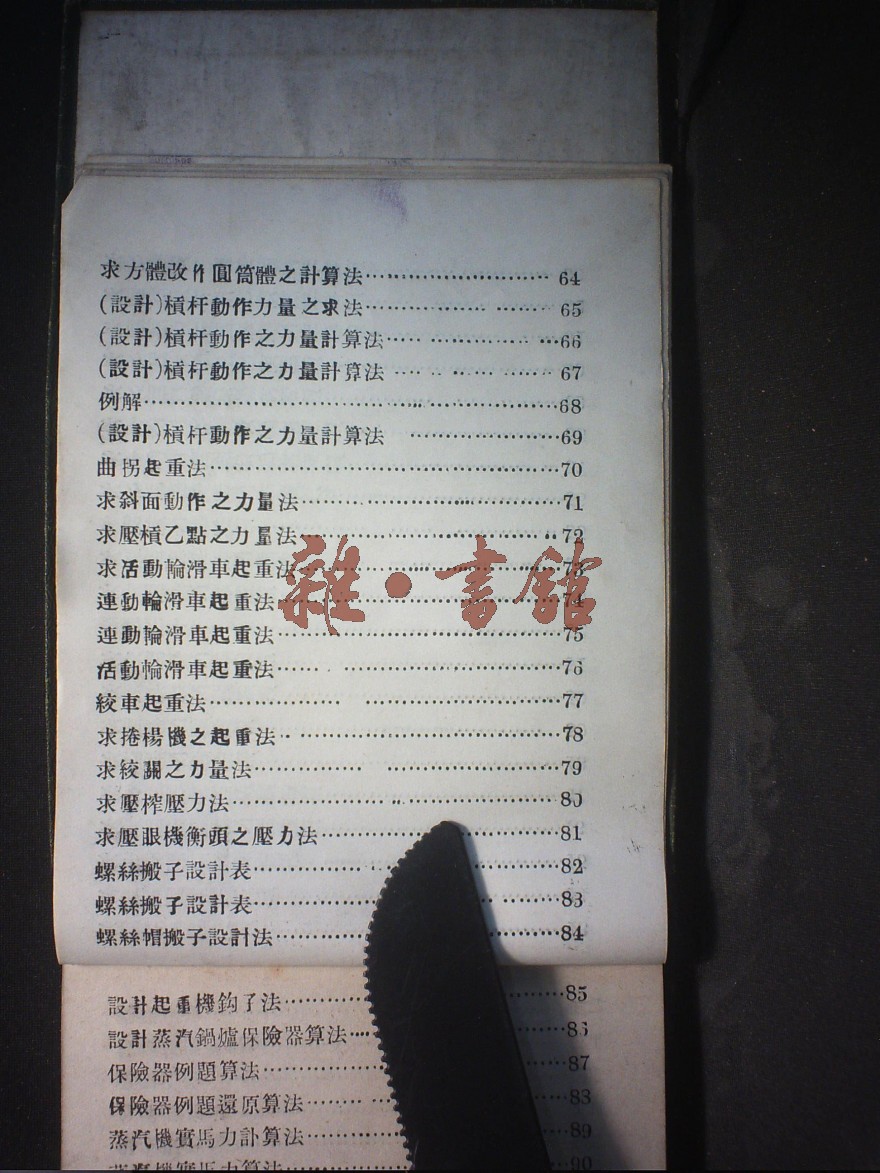 求方體改作圓筒體之計算法 64
(設計)槓杆動作力量之求法 65
(設計)槓杆動作之力量計算法 66
(設計)槓杆動作之力量計算法 67
例解 68
(設計)槓杆動作之力量計算法 69
曲拐起重法 70
求斜面動作之力量法 71
求壓槓乙點之力量法 72
求活動輪滑車起重法 73
連動輪滑車起重法 74
雜·書館
連動輪滑車起重法 75
活動輪滑車起重法 76
絞車起重法 77
求捲楊機之起重法 78
求絞關之力量法 79
求壓榨壓力法 80
求壓眼機衡頭之壓力法 81
螺絲搬子設計表 82
螺絲搬子設計表 83
螺絲帽搬子設計法 84
設計起重機鈎子法 85
設計蒸汽鍋爐保險器算法 86
保險器例題算法 87
保險器例題還原算法 88
蒸汽機實馬力計算法 89
蒸汽機實馬力算法 90